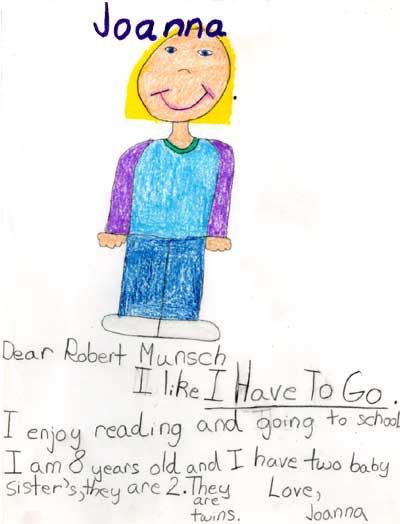 Joanna
Dear Robert Munsch
I like I Have To Go.
I enjoy reading and going to school
I am 8 years old and I have two baby
sister's, they are 2. They are twins.
Love,
Joanna